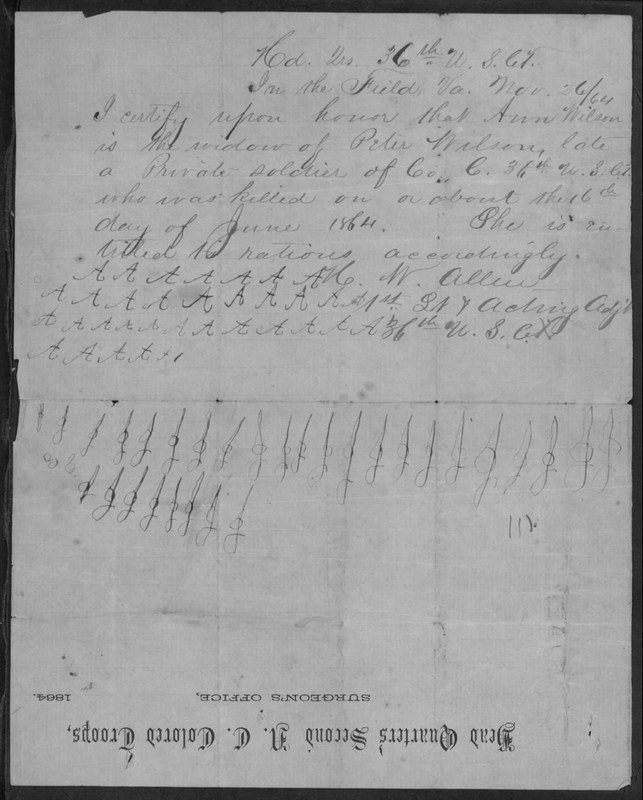 Hd. Qrs. 36th U. S. C.T.
In the Field, Va. Nov. 26/64
I certify upon honor that Ann Wilson
is the widow of Peter Wilson, late
a Private soldier of Co. C. 36th U. S. C.T.
who was killed on or about the 16th
day of June 1864. She is en-
titled to rations accordingly.
A A A A A A A H. W. Allen
A A A A A A A A A 1st Lt & Acting Adj't
A A A A A A A A A A A 36th U. S. C.T.
A A A A
Head Quarters Second N. C. Colored Troops,
SURGEON'S OFFICE, 1864.